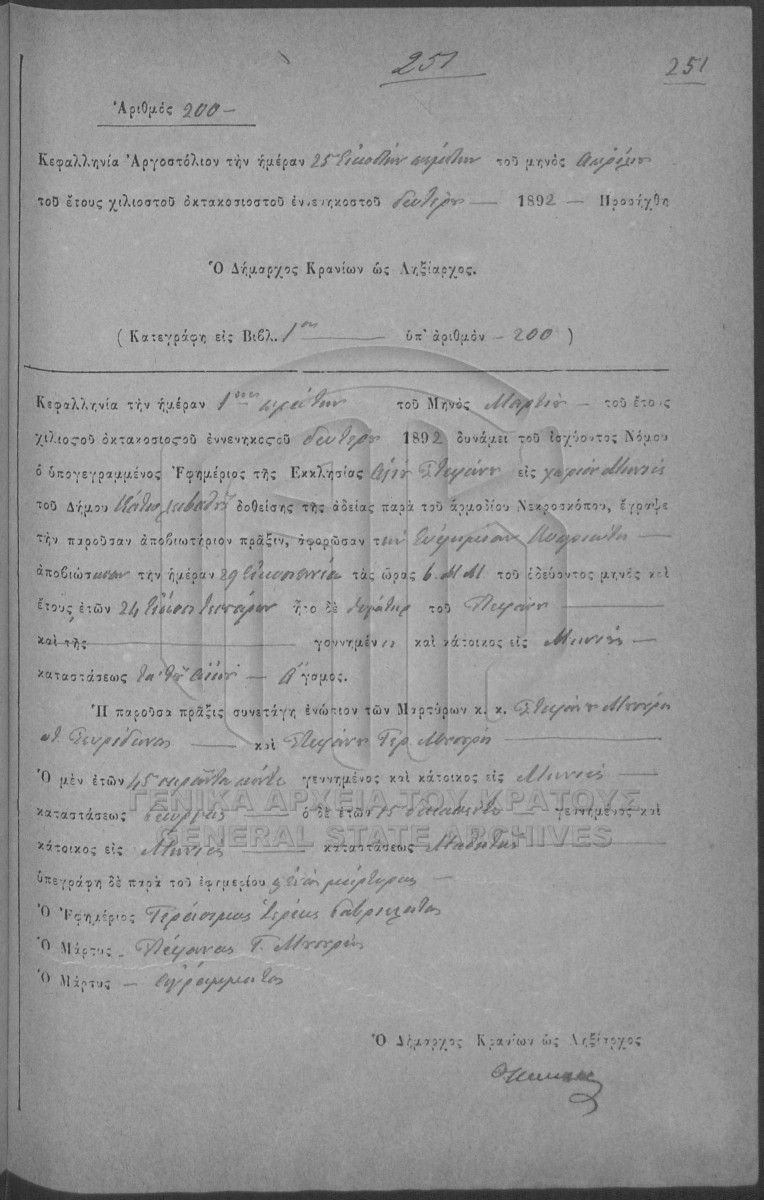 251
251
Ἀριθμὸς 200 —
Κεφαλληνία Ἀργοστόλιον τὴν ἡμέραν 25 Εἰκοστὴν πέμπτην τοῦ μηνὸς Ἀπρίλιο
τοῦ ἔτους χιλιοστοῦ ὀκτακοσιοστοῦ ἐννενηκοστοῦ δευτέρου — 1892 — Προσήχθη
Ὁ Δήμαρχος Κρανίων ὡς Ληξίαρχος.
( Κατεγράφη εἰς Βιβλ. 1ον ὑπ' ἀριθμὸν — 200 )
Κεφαλληνία τὴν ἡμέραν 1ην πρώτην τοῦ Μηνὸς Μαρτίου — τοῦ ἔτους
χιλιοςοῦ ὀκτακοσιοςοῦ ἐννενηκοςοῦ δευτέρου 1892 δυνάμει τοῦ ἰσχύοντος Νόμου
ὁ ὑπογεγραμμένος Ἐφημέριος τῆς Ἐκκλησίας Ἁγίου Στεφάνου εἰς χωρίον Μινιές
τοῦ Δήμου δοθείσης τῆς ἀδείας παρὰ τοῦ ἁρμοδίου Νεκροσκόπου, ἔγραψε
τὴν παροῦσαν ἀποβιωτήριον πρᾶξιν, ἀφορῶσαν τὴν Εὐφημίαν
ἀποβιώσασαν τὴν ἡμέραν 29 Εἰκοσιεννέα τὰς ὥρας 6 Μ Μ τοῦ ὁδεύοντος μηνὸς καὶ
ἔτους ἐτῶν 24 Εἴκοσι τεσσάρων ἦτο δὲ θυγάτηρ τοῦ Στεφάνου
καὶ τῆς — γεννημένη καὶ κάτοικος εἰς Μινιές —
καταστάσεως τοῦ οἴκου — Ἄγαμος.
Ἡ παροῦσα πρᾶξις συνετάγη ἐνώπιον τῶν Μαρτύρων κ. κ. Στεφάνου Μπουρή
Σπυρίδωνος — καὶ Στεφάνου Γερ. Μπουρή
Ὁ μὲν ἐτῶν 45 σαράντα πέντε γεννημένος καὶ κάτοικος εἰς Μινιές —
καταστάσεως Γεωργός ὁ δὲ ἐτῶν 15 δεκαπέντε — γεννημένος καὶ
κάτοικος εἰς Μινιές — καταστάσεως Μαθητής
ὑπεγράφη δὲ παρὰ τοῦ ἐφημερίου μάρτυρος —
Ὁ Ἐφημέριος Γεράσιμος Ἱερεὺς
Ὁ Μάρτυς — Στέφανος Γ. Μπουρής
Ὁ Μάρτυς — ἀγράμματος
Ὁ Δήμαρχος Κρανίων ὡς Ληξίαρχος
ΓΕΝΙΚΑ ΑΡΧΕΙΑ ΤΟΥ ΚΡΑΤΟΥΣ
GENERAL STATE ARCHIVES